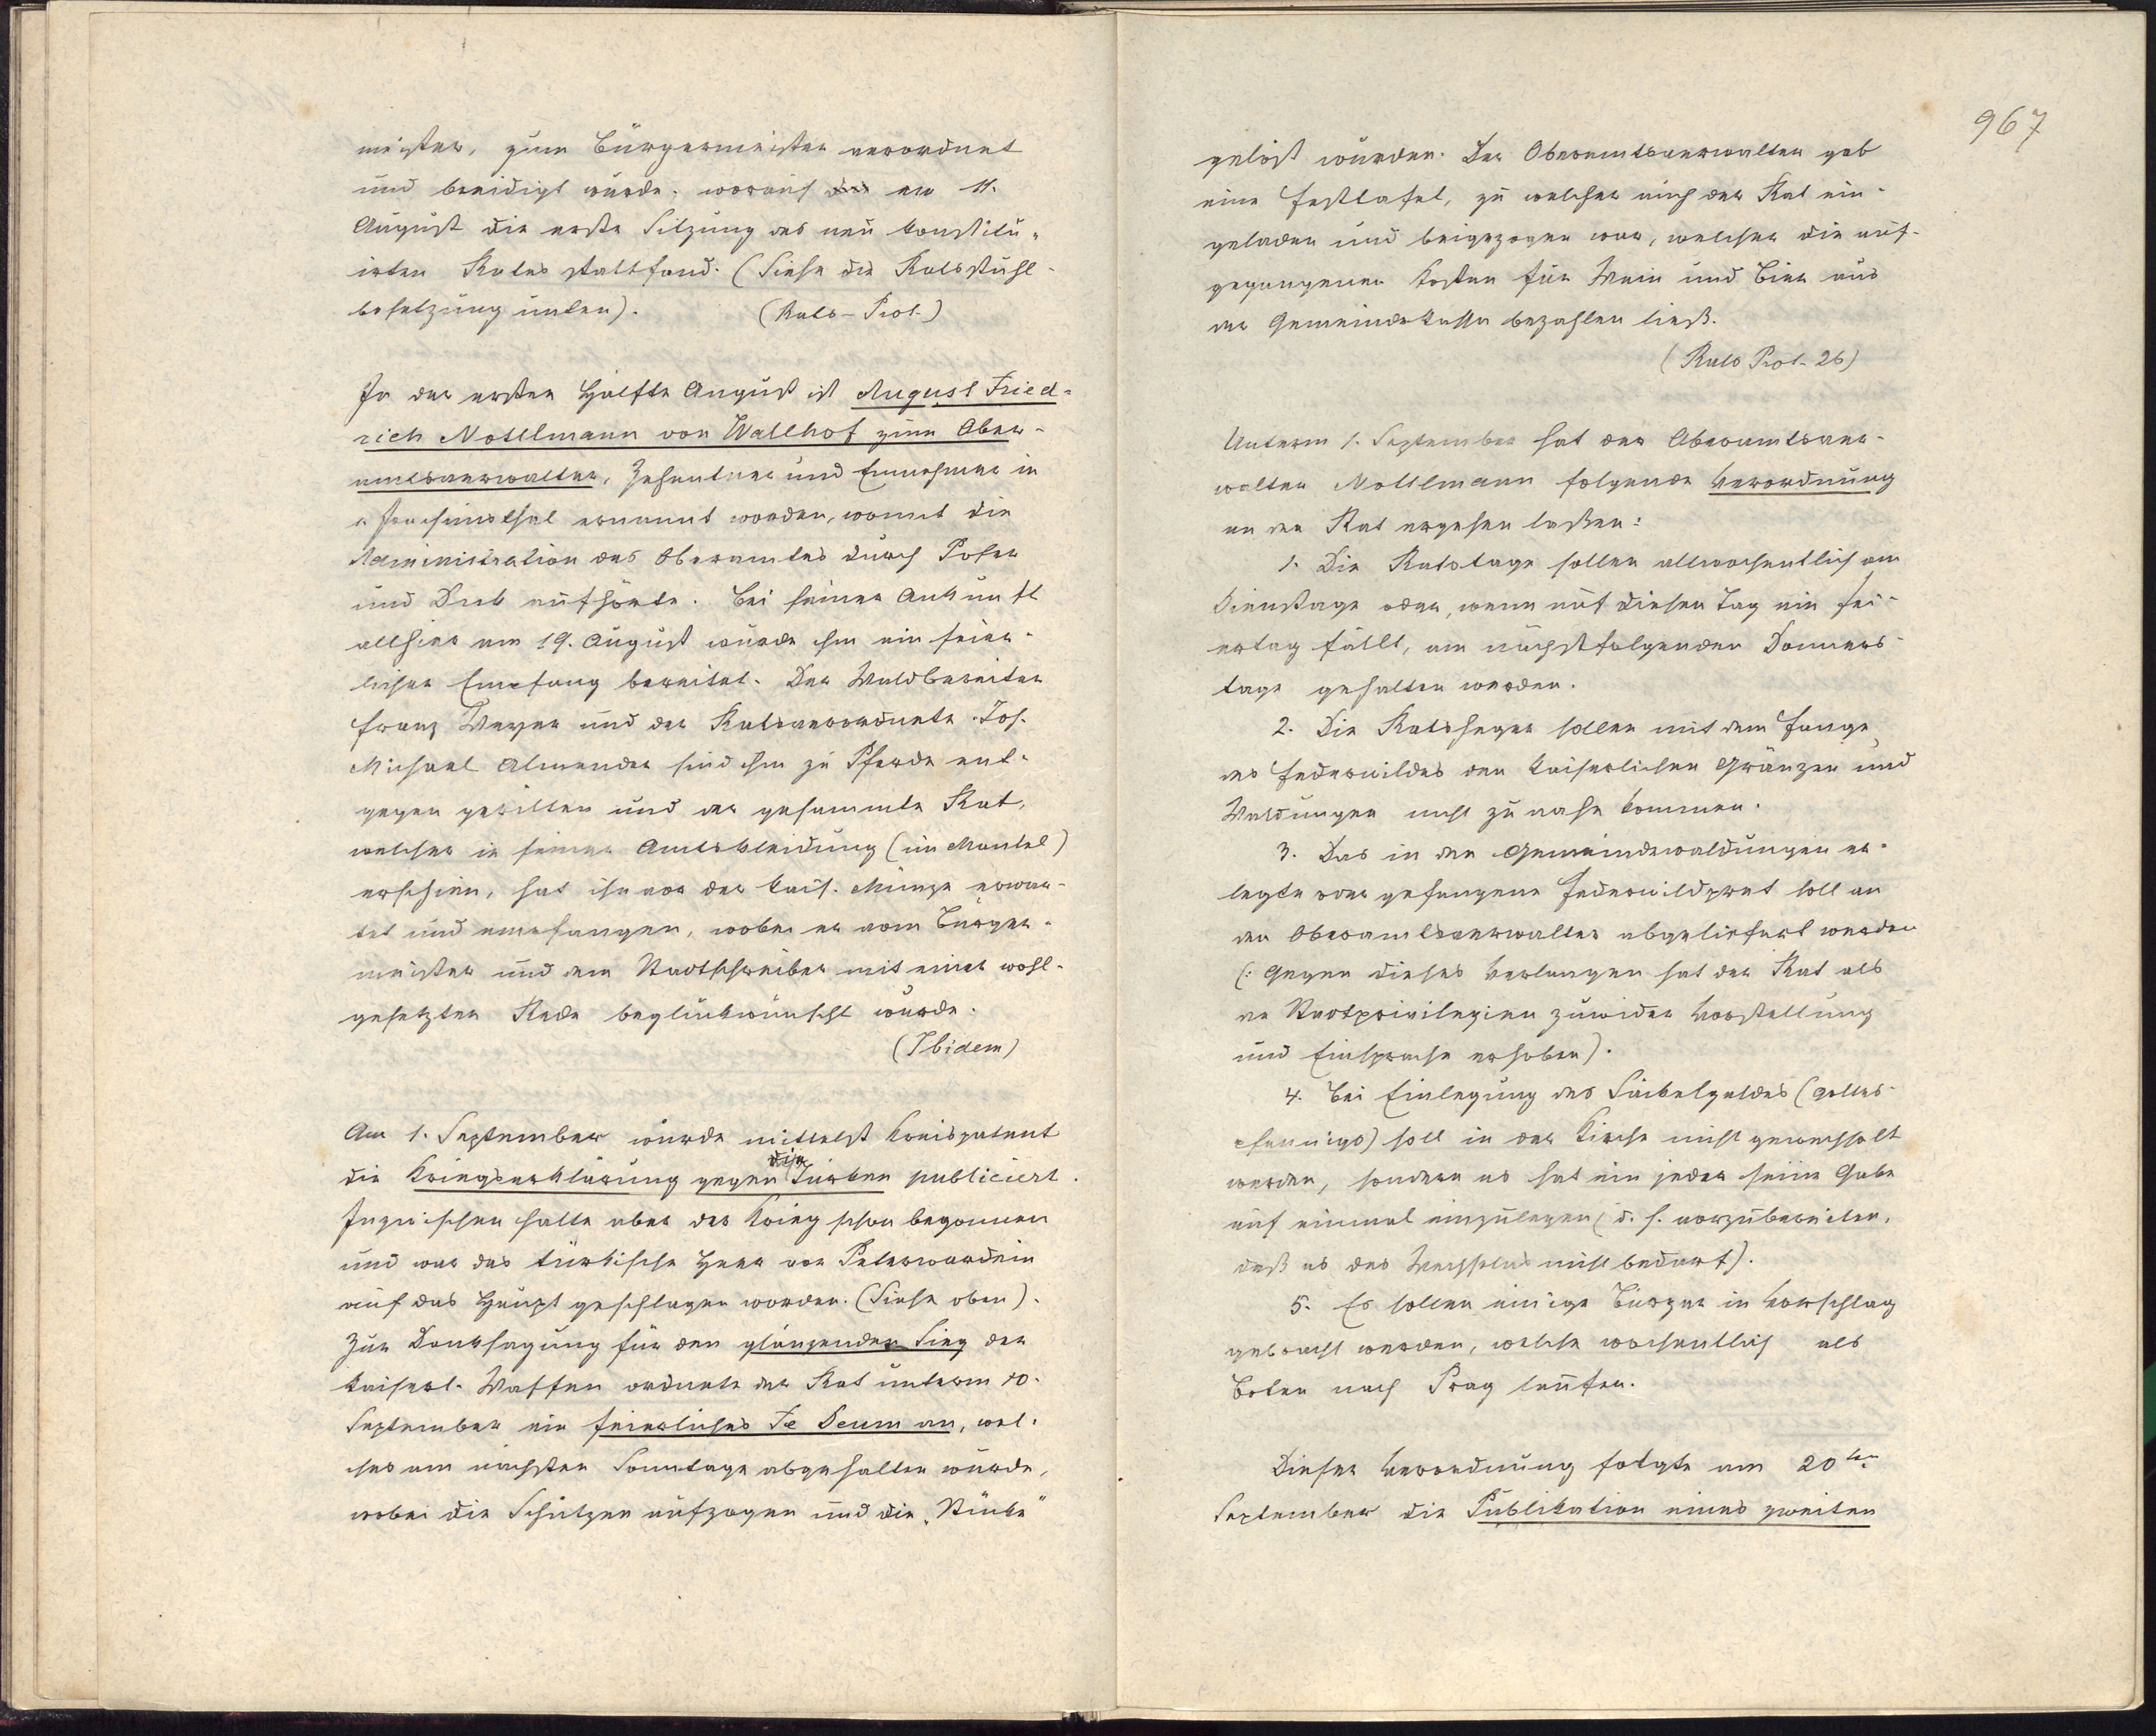 meister, zum Bürgermeister verordnet
und beeidigt wurde, worauf am 11.
August die erste Sitzung des neu konstitu-
irten Rates stattfand. (Siehe die Ratsstuhl-
besetzung unten). (Rats-Prot.)
In der ersten Hälfte August ist August Fried-
rich Mottlmann von Wallhof zum Ober-
amtsverwalter, Zehentner und Einnehmer in
Joachimsthal ernannt worden, womit die
Administration des Oberamtes durch Poser
und aufhörte. Bei seiner Ankunft
allhier am 19. August wurde ihm ein feier-
licher Empfang bereitet. Der Waldbereiter
Franz Meyer und der Ratsverordnete Jos.
Michael sind ihm zu Pferde ent-
gegen geritten und der gesammte Rat,
welcher in seiner Amtskleidung (im Mantel)
erschien, hat ihn vor der kais. Münze erwar-
tet und empfangen, wobei er vom Bürger-
meister und dem Stadtschreiber mit einer wohl-
gesetzten Rede beglückwünscht wurde.
(Ibidem)
Am 1. September wurde mittelst Kreispatent
die Kriegserklärung gegen die Türken publiciert.
Inzwischen hatte aber der Krieg schon begonnen
und war das türkische Heer von Peterwardein
auf das Haupt geschlagen worden. (Siehe oben).
Zur Danksagung für den glänzenden Sieg der
kaiserl. Waffen ordnete der Rat unterm 10.
September ein feierliches Te Deum an, wel-
ches am nächsten Sonntage abgehalten wurde,
wobei die Schützen aufzogen und die „Stücke“
967
gelöst wurden. Der Oberamtsverwalter gab
eine Festtafel, zu welcher auch der Rat ein-
geladen und beigezogen war, welcher die auf-
gegangenen Kosten für Wein und Bier aus
der Gemeindekassa bezahlen ließ.
(Rats Prot. 26)
Unterm 1. September hat der Oberamtsver-
walter Mottlmann folgende Verordnung
an den Rat ergehen laßen:
1. Die Ratstage sollen allwochentlich am
Dienstage oder, wenn auf diesen Tag ein Fei-
ertag fällt, am nächstfolgenden Donners-
tage gehalten werden.
2. Die Ratsheger sollen mit dem Fange
des Federwildes den kaiserlichen Gränzen und
Waldungen nicht zu nahe kommen.
3. Das in den Gemeindewaldungen er-
legte oder gefangene Federwildpret soll an
den Oberamtsverwalter abgeliefert werden
(: Gegen dieses Verlangen hat der Rat als
den Stadtprivilegien zuwider Vorstellung
und Einsprache erhoben).
4. Bei Einlegung des Säckelgeldes (Gottes-
pfennigs) soll in der Kirche nicht gewechselt
werden, sondern es hat ein jeder seine Gabe
auf einmal einzulegen (d. h. vorzubereiten,
daß es des Wechselns nicht bedarf).
5. Es sollen einige Bürger in Vorschlag
gebracht werden, welche wochentlich als
Boten nach Prag laufen.
Dieser Verordnung folgte am 20ten
September die Publikation eines zweiten